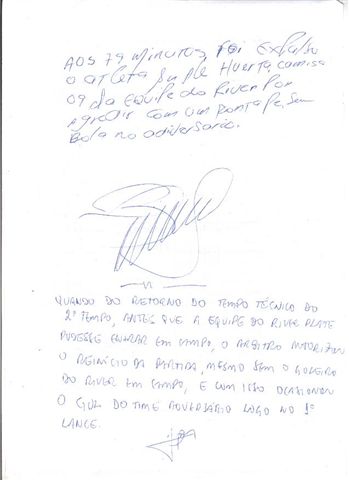 AOS 79 minutos, Foi Expulso
o atleta Huerta, camisa
09 da EQUIPE do River Por
Agredir com um pontape sem
Bola no adversario.
QUANDO DO RETORNO DO TEMPO TÉCNICO DO
2º TEMPO, ANTES QUE A EQUIPE DO RIVER PLATE
PUDESSE ENTRAR EM CAMPO, O ARBITRO AUTORIZOU
O REINÍCIO DA PARTIDA, MESMO SEM O GOLEIRO
DO RIVER EM CAMPO, E COM ISSO OCASIONOU
O GOL DO TIME ADVERSÁRIO LOGO NO 1º
LANCE.